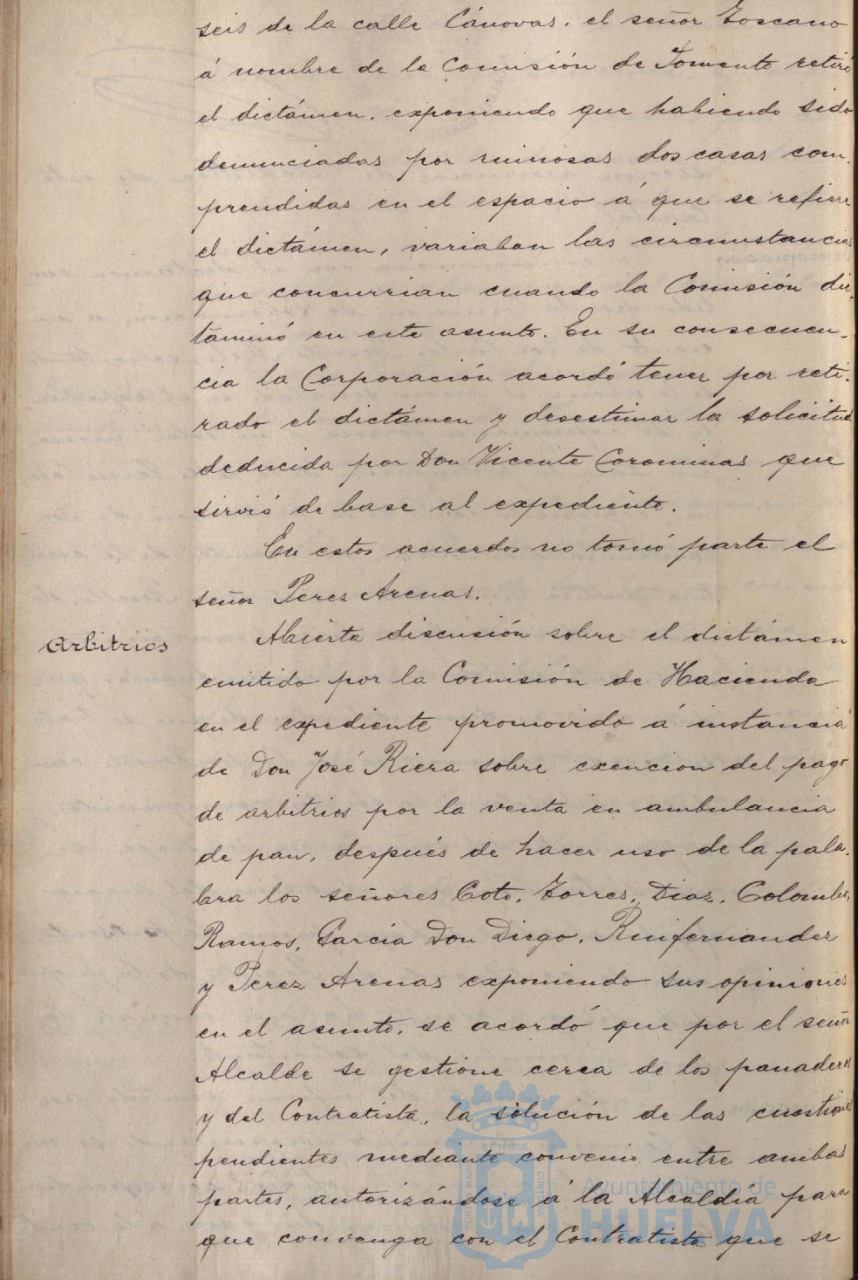 seis de la calle Cánovas, el señor Toscano
á nombre de la Comisión de Fomento retiró
el dictámen, exponiendo que habiendo sido
denunciadas por ruinosas dos casas com-
prendidas en el espacio á que se refiere
el dictámen, variaban las circunstancias
que concurrian cuando la Comisión dic-
taminó en este asunto. En su consecuen-
cia la Corporación acordó tener por reti-
rado el dictámen y desestimar la solicitud
deducida por Don Vicente Corominas que
sirvió de base al expediente.
En estos acuerdos no tomó parte el
señor Perez Arenas.
Arbitrios
Abierta discusión sobre el dictámen
emitido por la Comisión de Hacienda
en el expediente promovido á instancia
de Don José Riera sobre exencion del pago
de arbitrios por la venta en ambulancia
de pan, después de hacer uso de la pala-
bra los señores Coto, Torres, Diaz, Colombo,
Ramos, García Don Diego, Ruifernandez
y Perez Arenas exponiendo sus opiniones
en el asunto, se acordó que por el señor
Alcalde se gestione cerca de los panaderos
y del Contratista, la solución de las cuestiones
pendientes mediante convenio entre ambas
partes, autorizándose á la Alcaldía para
que convenga con el Contratista que se
Ayuntamiento de
HUELVA